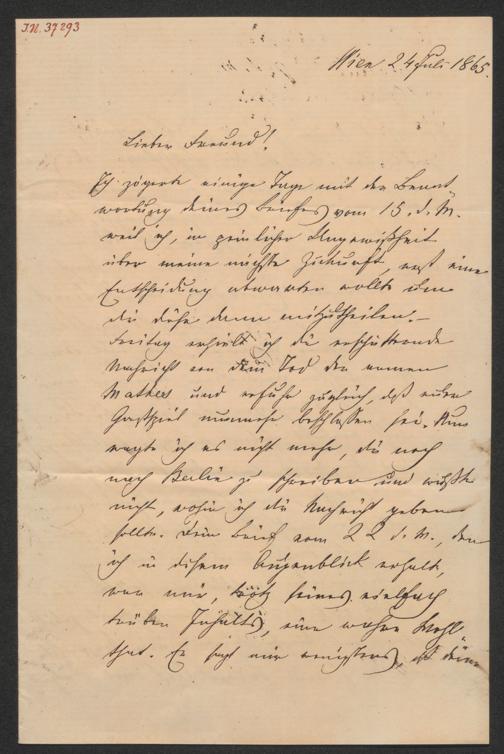 I.N. 37293
Wien 24 Juli 1865.
Lieber Freund!
Ich zögerte einige Tage mit der Beant-
wortung deines Briefes vom 15. d. M.
weil ich, in peinlicher Ungewißheit
über meine nächste Zukunft, erst eine
Entscheidung abwarten wollte um
dir diese dann mitzutheilen. –
Freitag erhielt ich die erschütternde
Nachricht von dem Tod der armen
Mathes und erfuhr zugleich, daß euer
Gastspiel nunmehr beschlossen sei. Nun
wagte ich es nicht mehr, dir noch
nach Berlin zu schreiben und wußte
nicht, wohin ich dir Nachricht geben
sollte. Dein Brief vom 22 d. M., den
ich in diesem Augenblick erhalte,
war mir, trotz seines vielfach
trüben Inhalts, eine wahre Wohl-
that. Er sagt mir wenigstens, daß deine